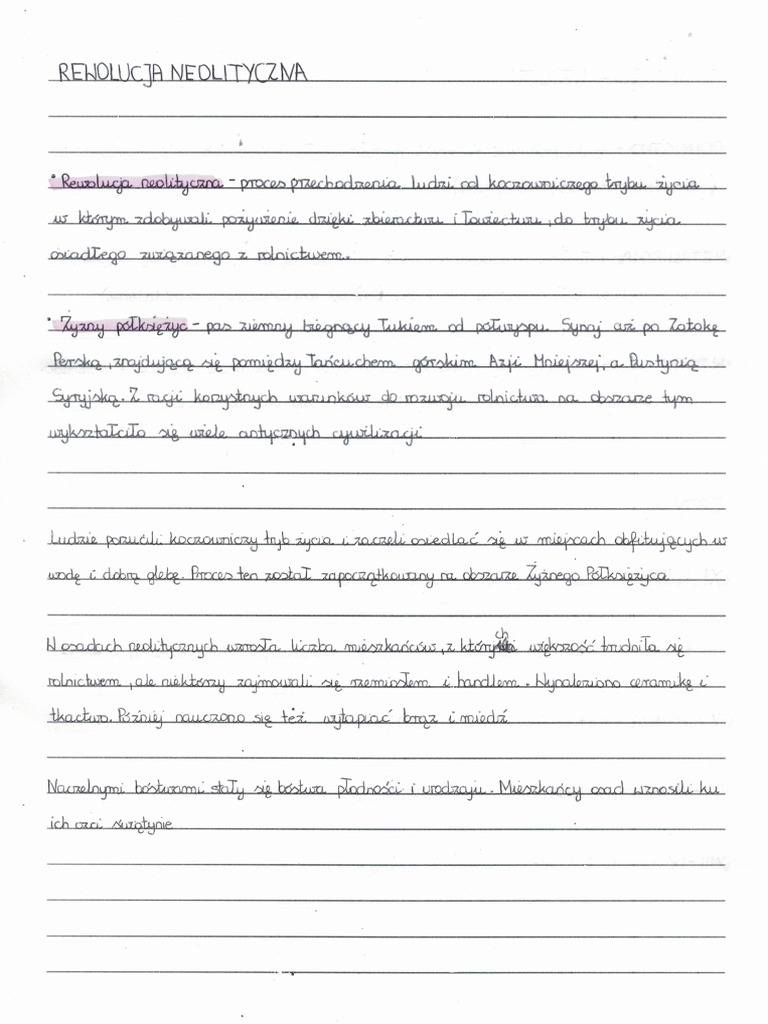 REWOLUCJA NEOLITYCZNA
• Rewolucja neolityczna - proces przechodzenia ludzi od koczowniczego trybu życia
w którym zdobywali pożywienie dzięki zbieractwu i łowiectwu, do trybu życia
osiadłego związanego z rolnictwem.
• Żyzny półksiężyc - pas ziemny biegnący łukiem od półwyspu Synaj aż po Zatokę
Perską, znajdującą się pomiędzy łańcuchem górskim Azji Mniejszej, a Pustynią
Syryjską. Z racji korzystnych warunków do rozwoju rolnictwa na obszarze tym
wykształciło się wiele antycznych cywilizacji
Ludzie porzucili koczowniczy tryb życia i zaczeli osiedlać się w miejscach obfitujących w
wodę i dobrą glebę. Proces ten został zapoczątkowany na obszarze Żyznego Półksiężyca
W osadach neolitycznych wzrosła liczba mieszkańców, z których większość trudniła się
rolnictwem, ale niektórzy zajmowali się rzemiosłem i handlem. Wynaleziono ceramikę i
tkactwo. Później nauczono się też wytapiać brąz i miedź
Naczelnymi bóstwami stały się bóstwa płodności i urodzaju. Mieszkańcy osad wznosili ku
ich czci świątynie